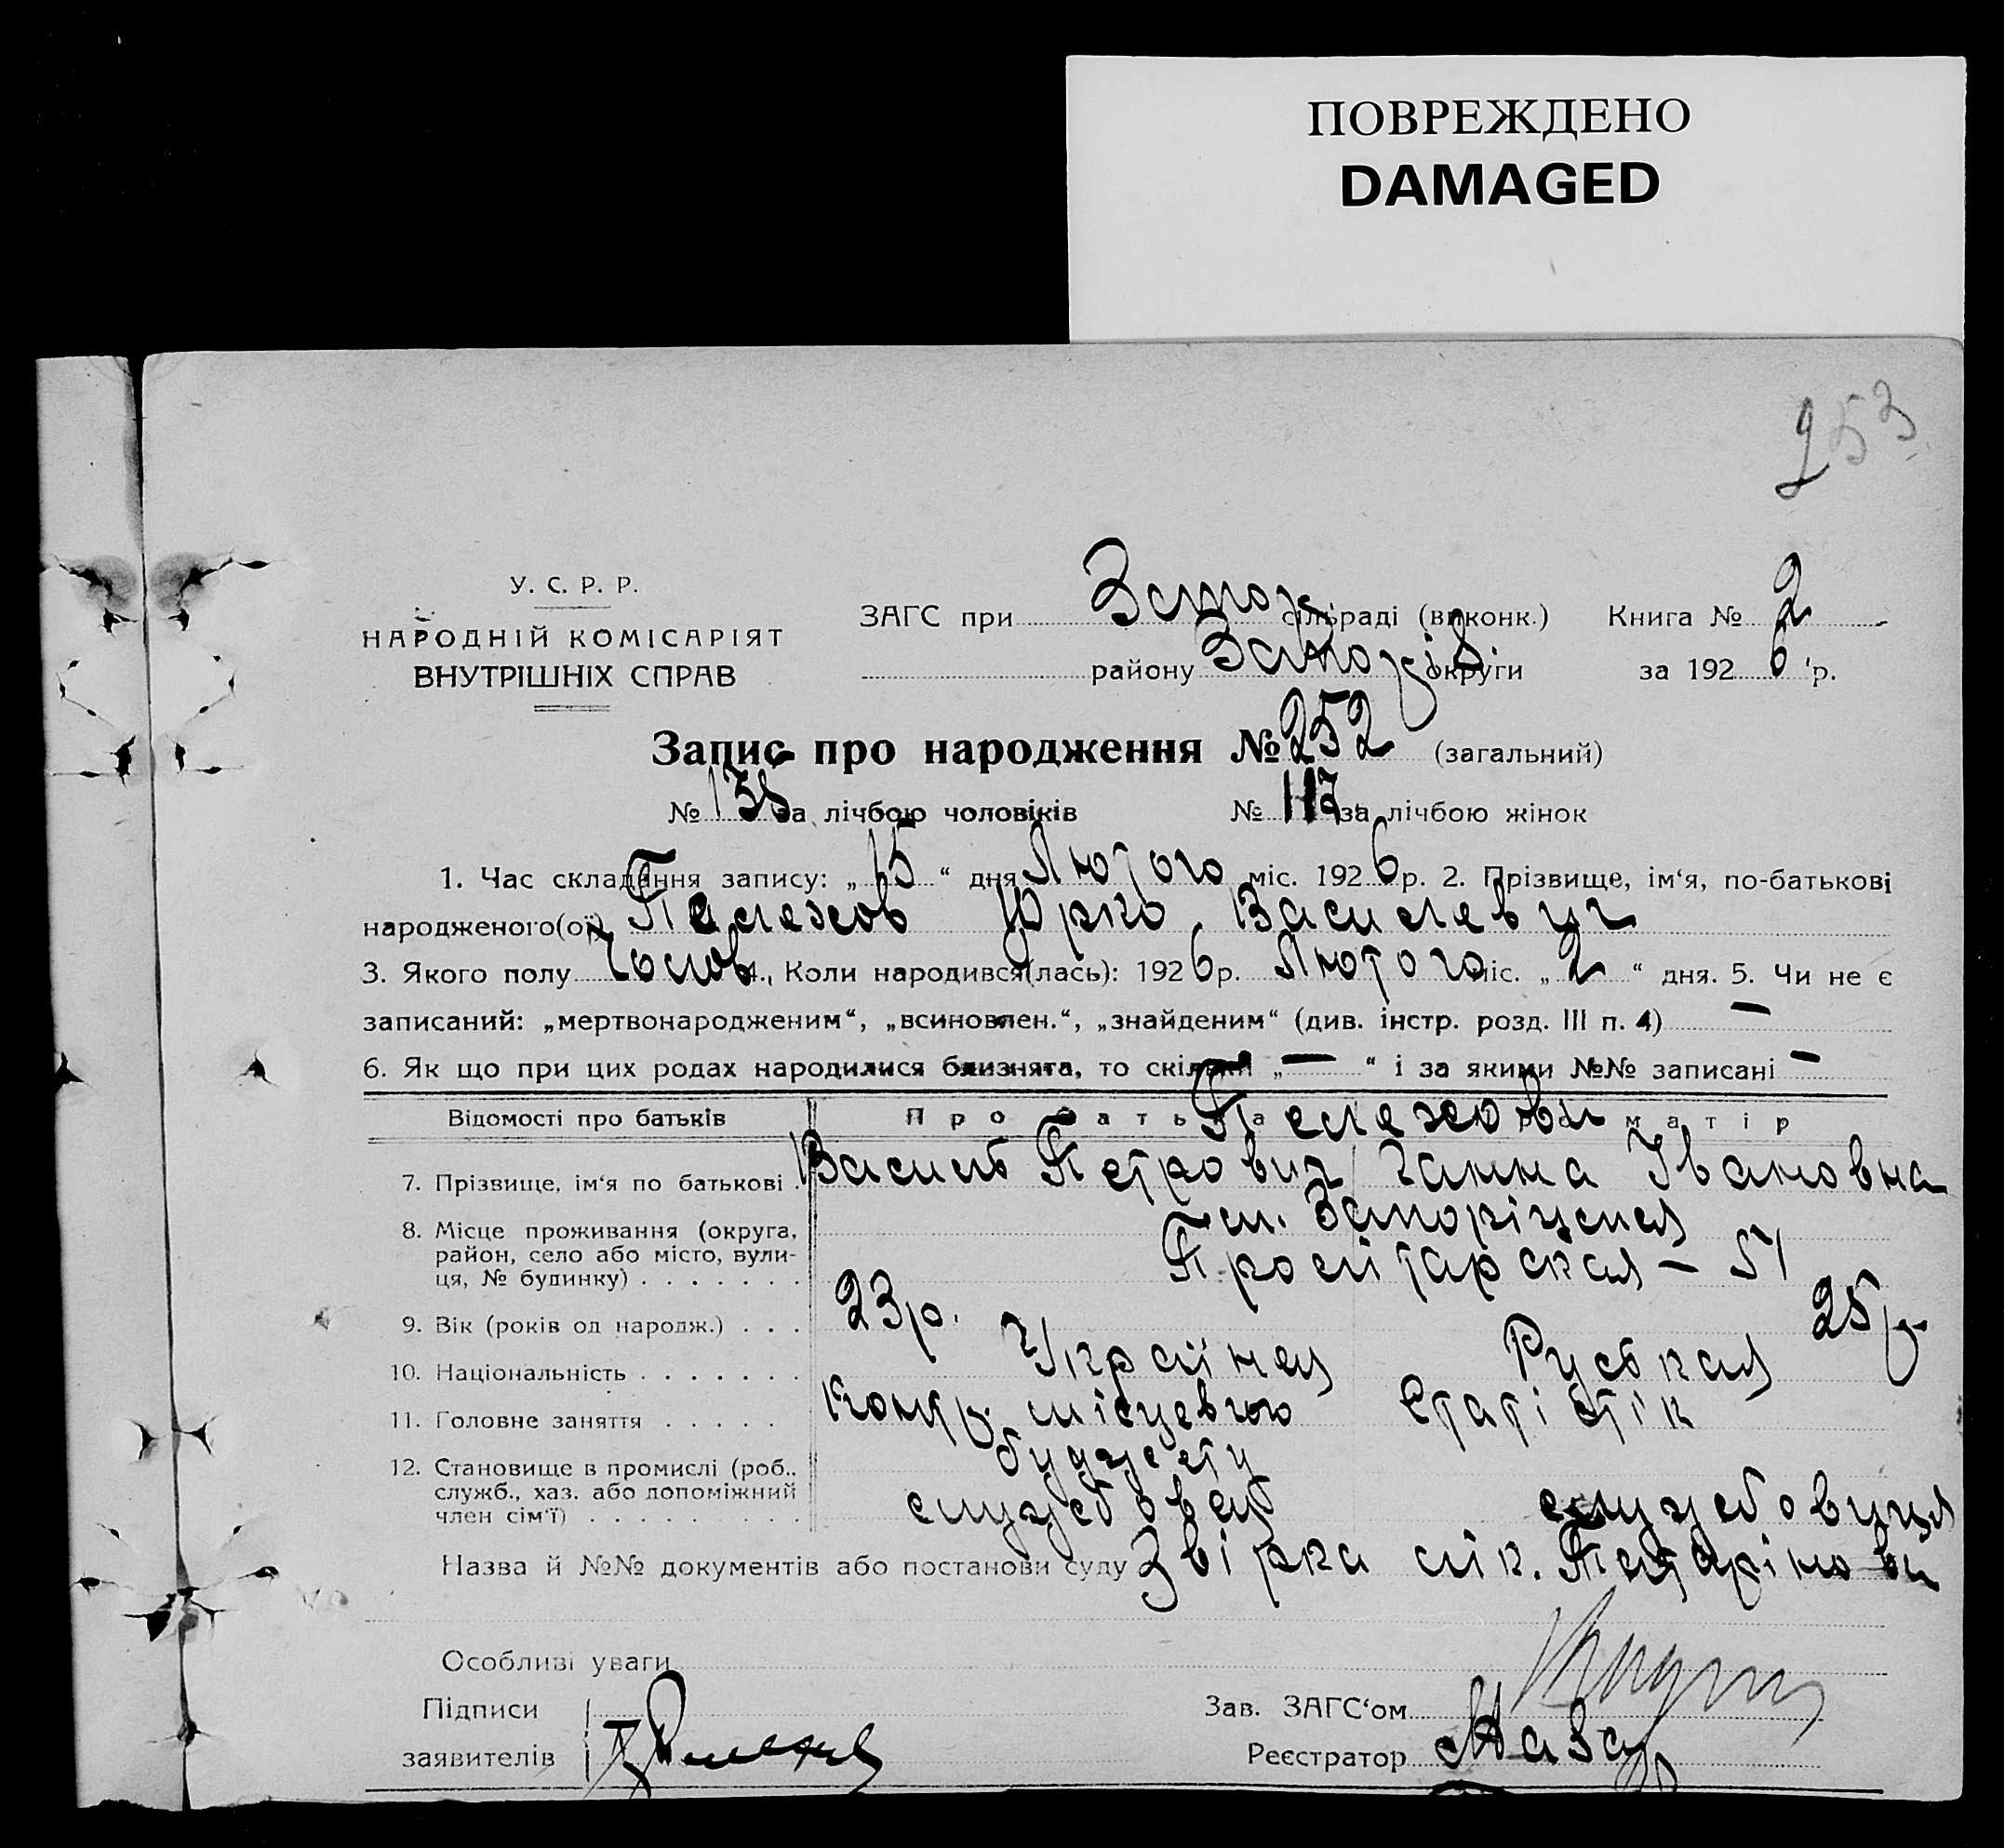 ПОВРЕЖДЕНО
DAMAGED
253
У. С. Р. Р.
НАРОДНІЙ КОМІСАРІЯТ
ВНУТРІШНІХ СПРАВ
ЗАГС при сільраді (виконк.) Книга № 2
району округи за 1926 р.
Запис про народження № 252 (загальний)
№ 135 за лічбою чоловіків № 117 за лічбою жінок
1. Час складання запису: „15“ дня Лютого міс. 1926 р. 2. Прізвище, ім‘я, по-батькові
народженого(ої) Пелехов Юрко Василевич
3. Якого полу Чолов. 4. Коли народився(лась): 1926 р. Лютого міс. „2“ дня. 5. Чи не є
записаний: „мертвонародженим“, „всиновлен.“, „знайденим“ (див. інстр. розд. III п. 4) —
6. Як що при цих родах народилися близнята, то скільки „—“ і за якими №№ записані —
Відомості про батьків Про батька матір
Пелехови
7. Прізвище, ім‘я по батькові . Василь Петрович / Ганна Івановна
8. Місце проживання (округа, район, село або місто, вулиця, № будинку) . . . . . . . м. Запоріжжя
Пролітарская — 51
9. Вік (років од народж.) . . . 23 р. 25 р.
10. Національність . . . . . . . Україная Руськая
11. Головне заняття . . . . . Контр. місцевого бюджету Статістік
12. Становище в промислі (роб., служб., хаз. або допоміжний член сім‘ї) . . . . . . . . . службовець службовиця
Назва й №№ документів або постанови суду Звірка лік.
Особливі уваги
Підписи Зав. ЗАГС‘ом
заявителів Реєстратор Назар